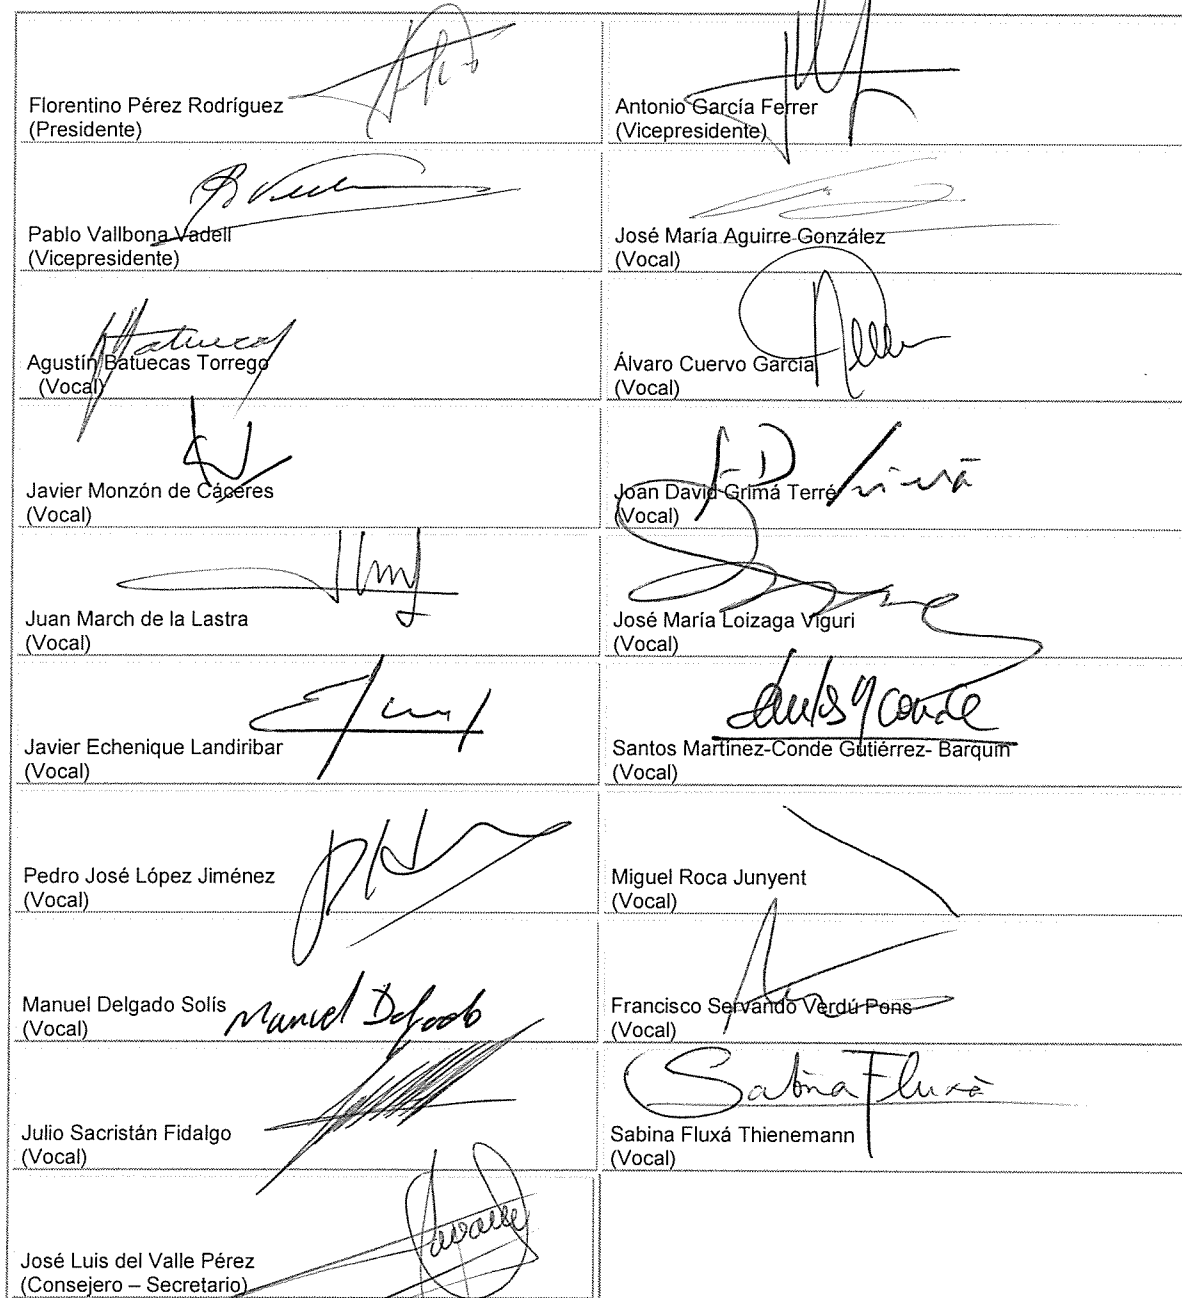 Florentino Pérez Rodríguez
(Presidente)
Antonio García Ferrer
(Vicepresidente)
Pablo Vallbona Vadell
(Vicepresidente)
José María Aguirre González
(Vocal)
Agustín Batuecas Torrego
(Vocal)
Álvaro Cuervo García
(Vocal)
Javier Monzón de Cáceres
(Vocal)
Joan David Grimá Terré
(Vocal)
Juan March de la Lastra
(Vocal)
José María Loizaga Viguri
(Vocal)
Javier Echenique Landiribar
(Vocal)
Santos Martínez-Conde Gutiérrez- Barquín
(Vocal)
Pedro José López Jiménez
(Vocal)
Miguel Roca Junyent
(Vocal)
Manuel Delgado Solís
(Vocal)
Manuel Delgado
Francisco Servando Verdú Pons
(Vocal)
Julio Sacristán Fidalgo
(Vocal)
Sabina Fluxà
Sabina Fluxá Thienemann
(Vocal)
José Luis del Valle Pérez
(Consejero – Secretario)